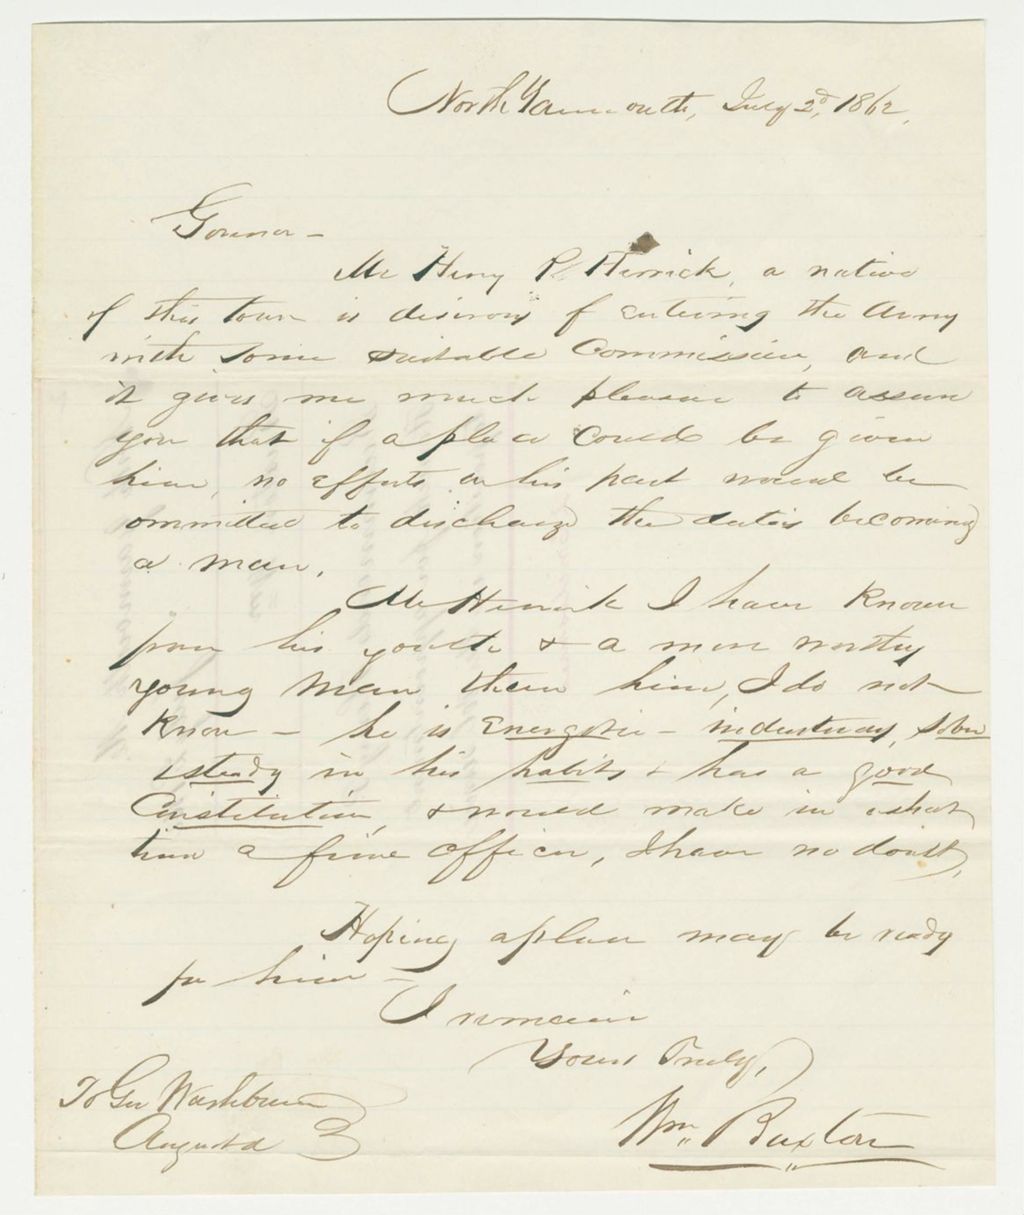 North Yarmouth, July 2d, 1862,
Governor -
Mr Henry R Herrick, a native
of this town is desirous of entering the Army
with some suitable Commission, and
it gives me much pleasure to assure
you that if a place could be given
him, no efforts on his part would be
ommitted to discharge the duties becoming
a man.
Mr Herrick I have known
from his youth & a more worthy
young man then him, I do not
know - he is Energetic - industrious, sober
steady in his habits & has a good
Constitution, & would make in a short
time a fine officer, I have no doubt,
Hoping a place may be ready
for him -
I remain
Yours Truly,
Wm. Buxton
To Gov Washburn
Augusta